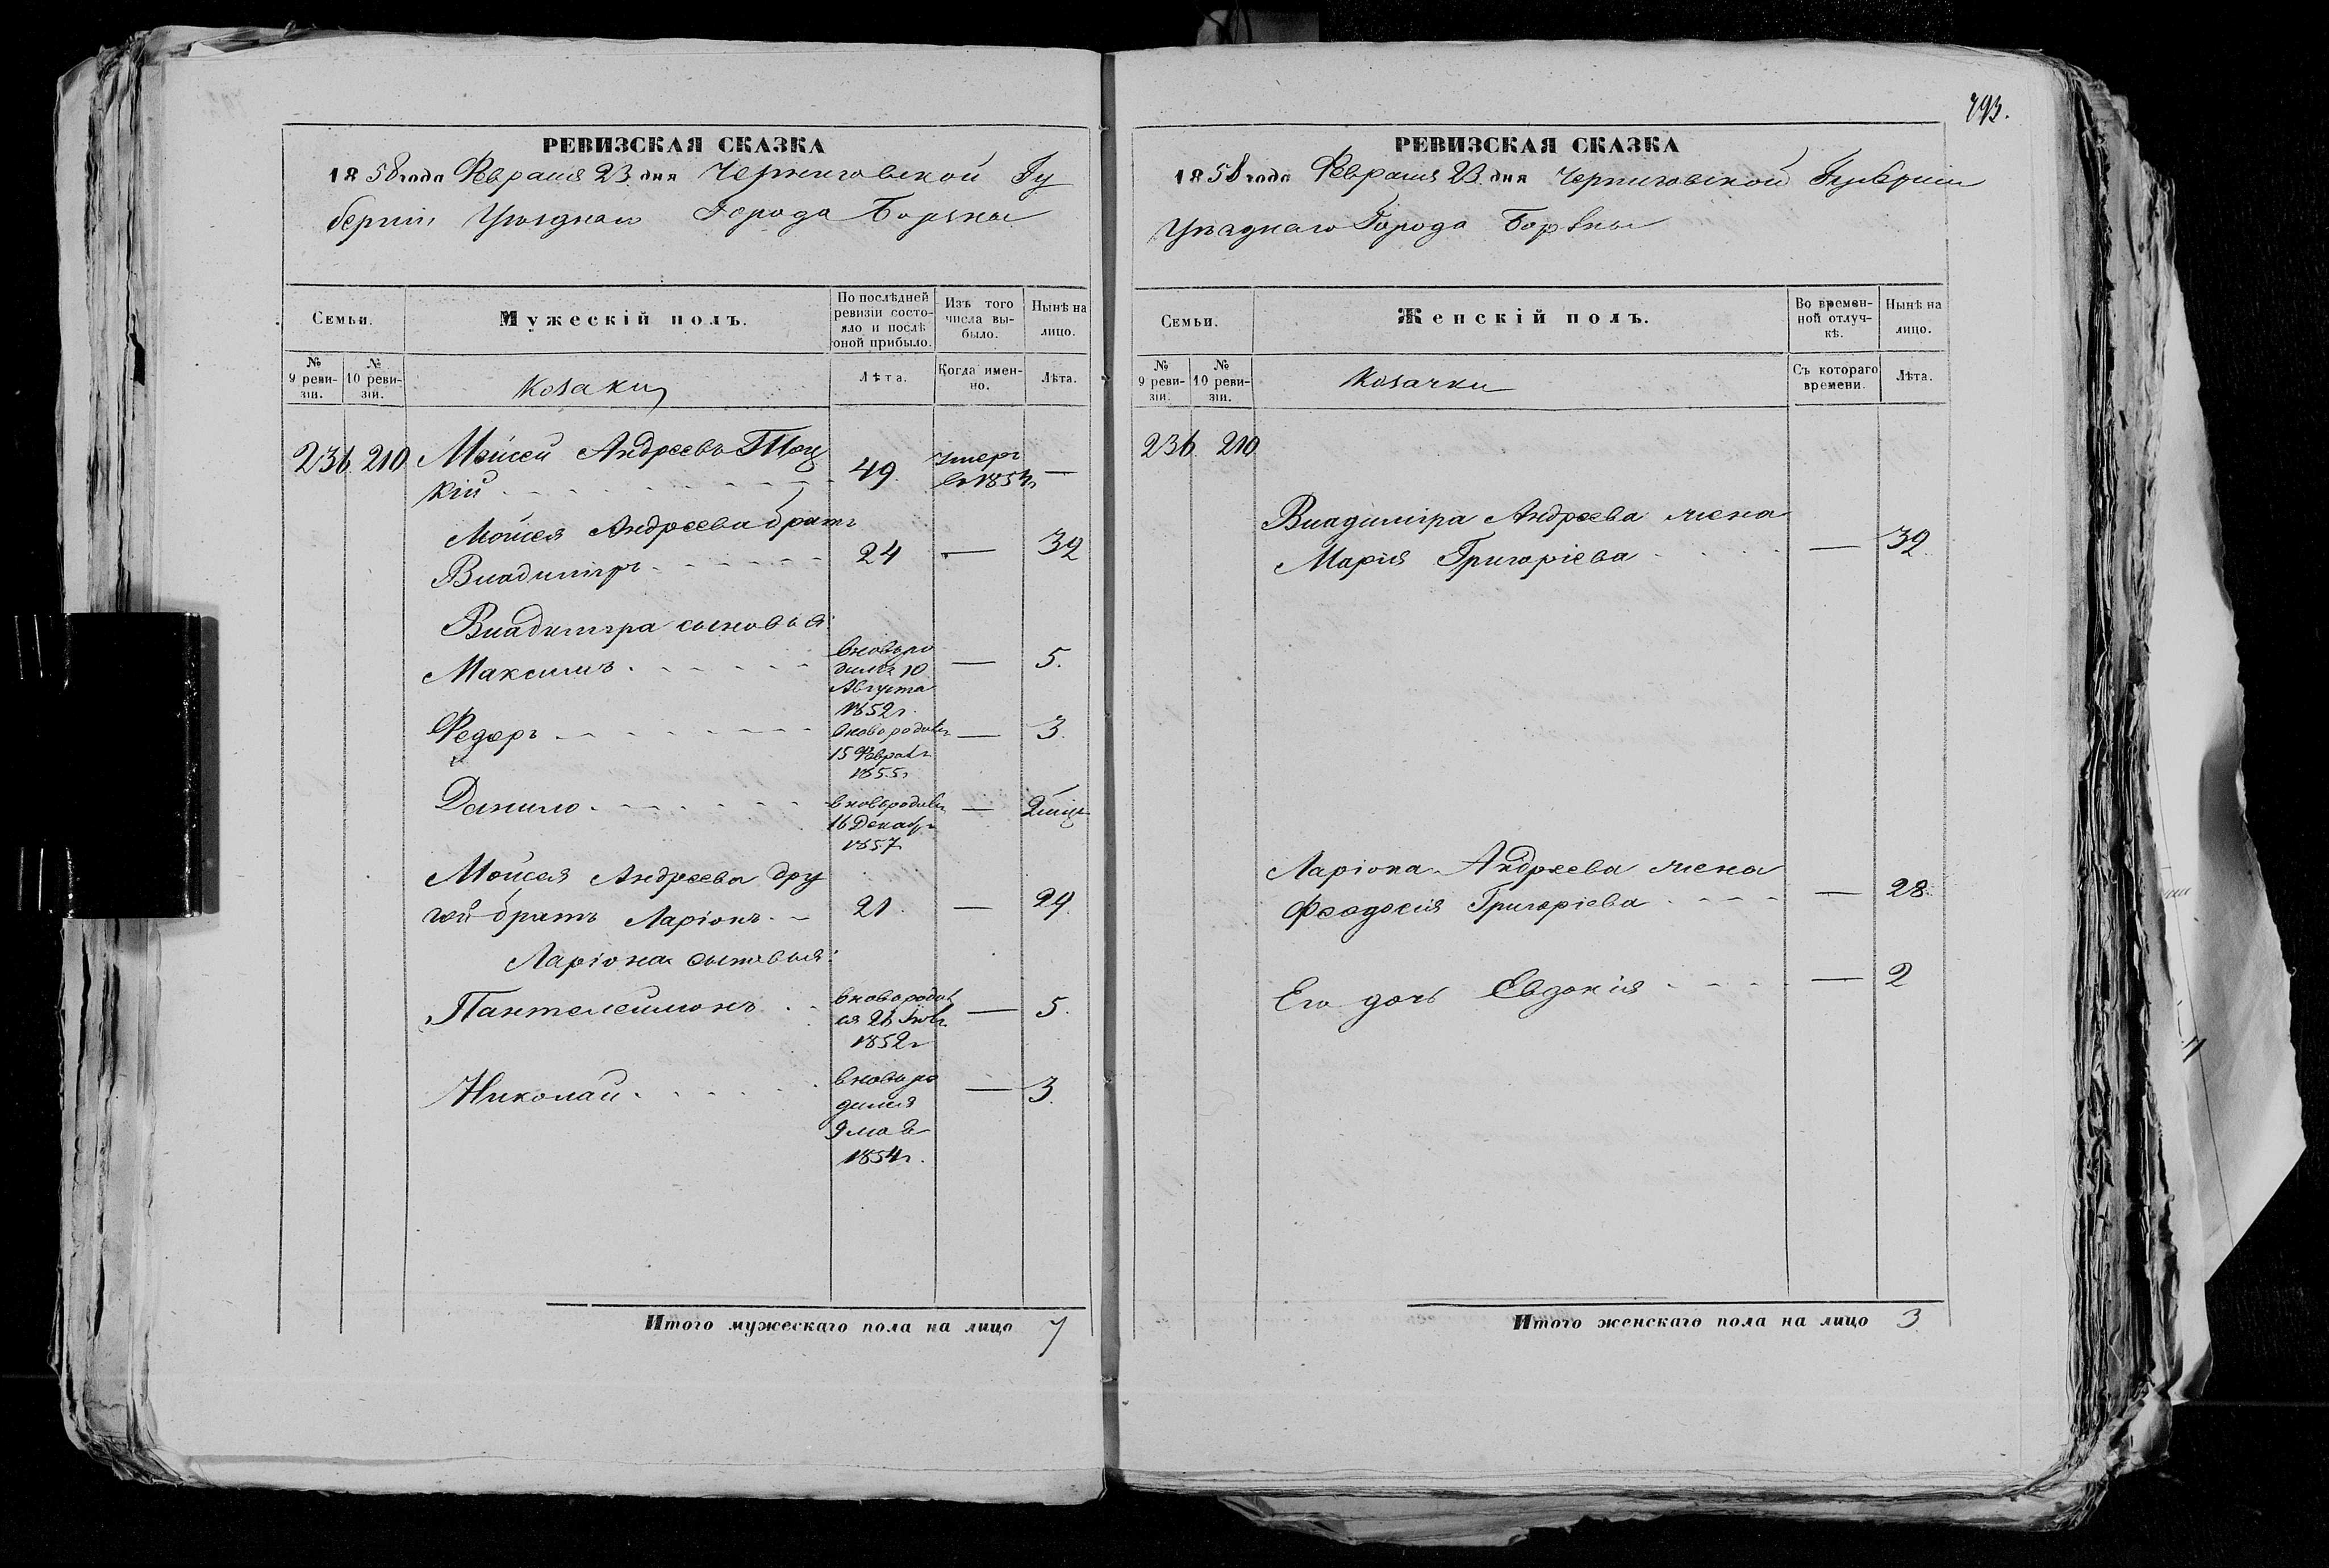 793.
РЕВИЗСКАЯ СКАЗКА
1858 года Февраля 23 дня Черниговской Гу
берніи Уѣзднаго Города Борзны
Семьи.
Мужескій полъ.
По послѣдней ревизіи состояло и послѣ оной прибыло.
Изъ того числа выбыло.
Нынѣ на лицо.
№ 9 ревизіи.
№ 10 ревизіи.
Козаки
Лѣта.
Когда именно.
Лѣта.
236 210 Мойсей Андреевъ
кій 49. умеръ въ 1854г —
Мойсея Андреева братъ
Владиміръ 24 — 32
Владиміра сыновья:
Максимъ вновь ро — 5.
дился 10
Августа
1852г.
Федоръ вновь родился — 3.
15 Февраля
1855г
Данило вновь родился — 2 мцѣ
16 Декабря
1857
Мойсея Андреева дру
гой братъ Ларіонъ 21. — 29.
Ларіона сыновья:
Пантелеймонъ вновь родил — 5.
ся
1852г
Николай вновь ро — 3.
дился
9 мая
1854г.
Итого мужескаго пола на лицо 7
РЕВИЗСКАЯ СКАЗКА
1858 года Февраля 23 дня Черниговской Губерніи
Уѣзднаго Города Борзны
Семьи.
Женскій полъ.
Во временной отлучкѣ.
Нынѣ на лицо.
№ 9 ревизіи.
№ 10 ревизіи.
Козачки
Съ котораго времени.
Лѣта.
236 210
Владиміра Андреева жена
Марія Григоріева — 32.
Ларіона Андреева жена
Феодосія Григоріева — 28.
Его дочь Евдокія — 2
Итого женскаго пола на лицо 3